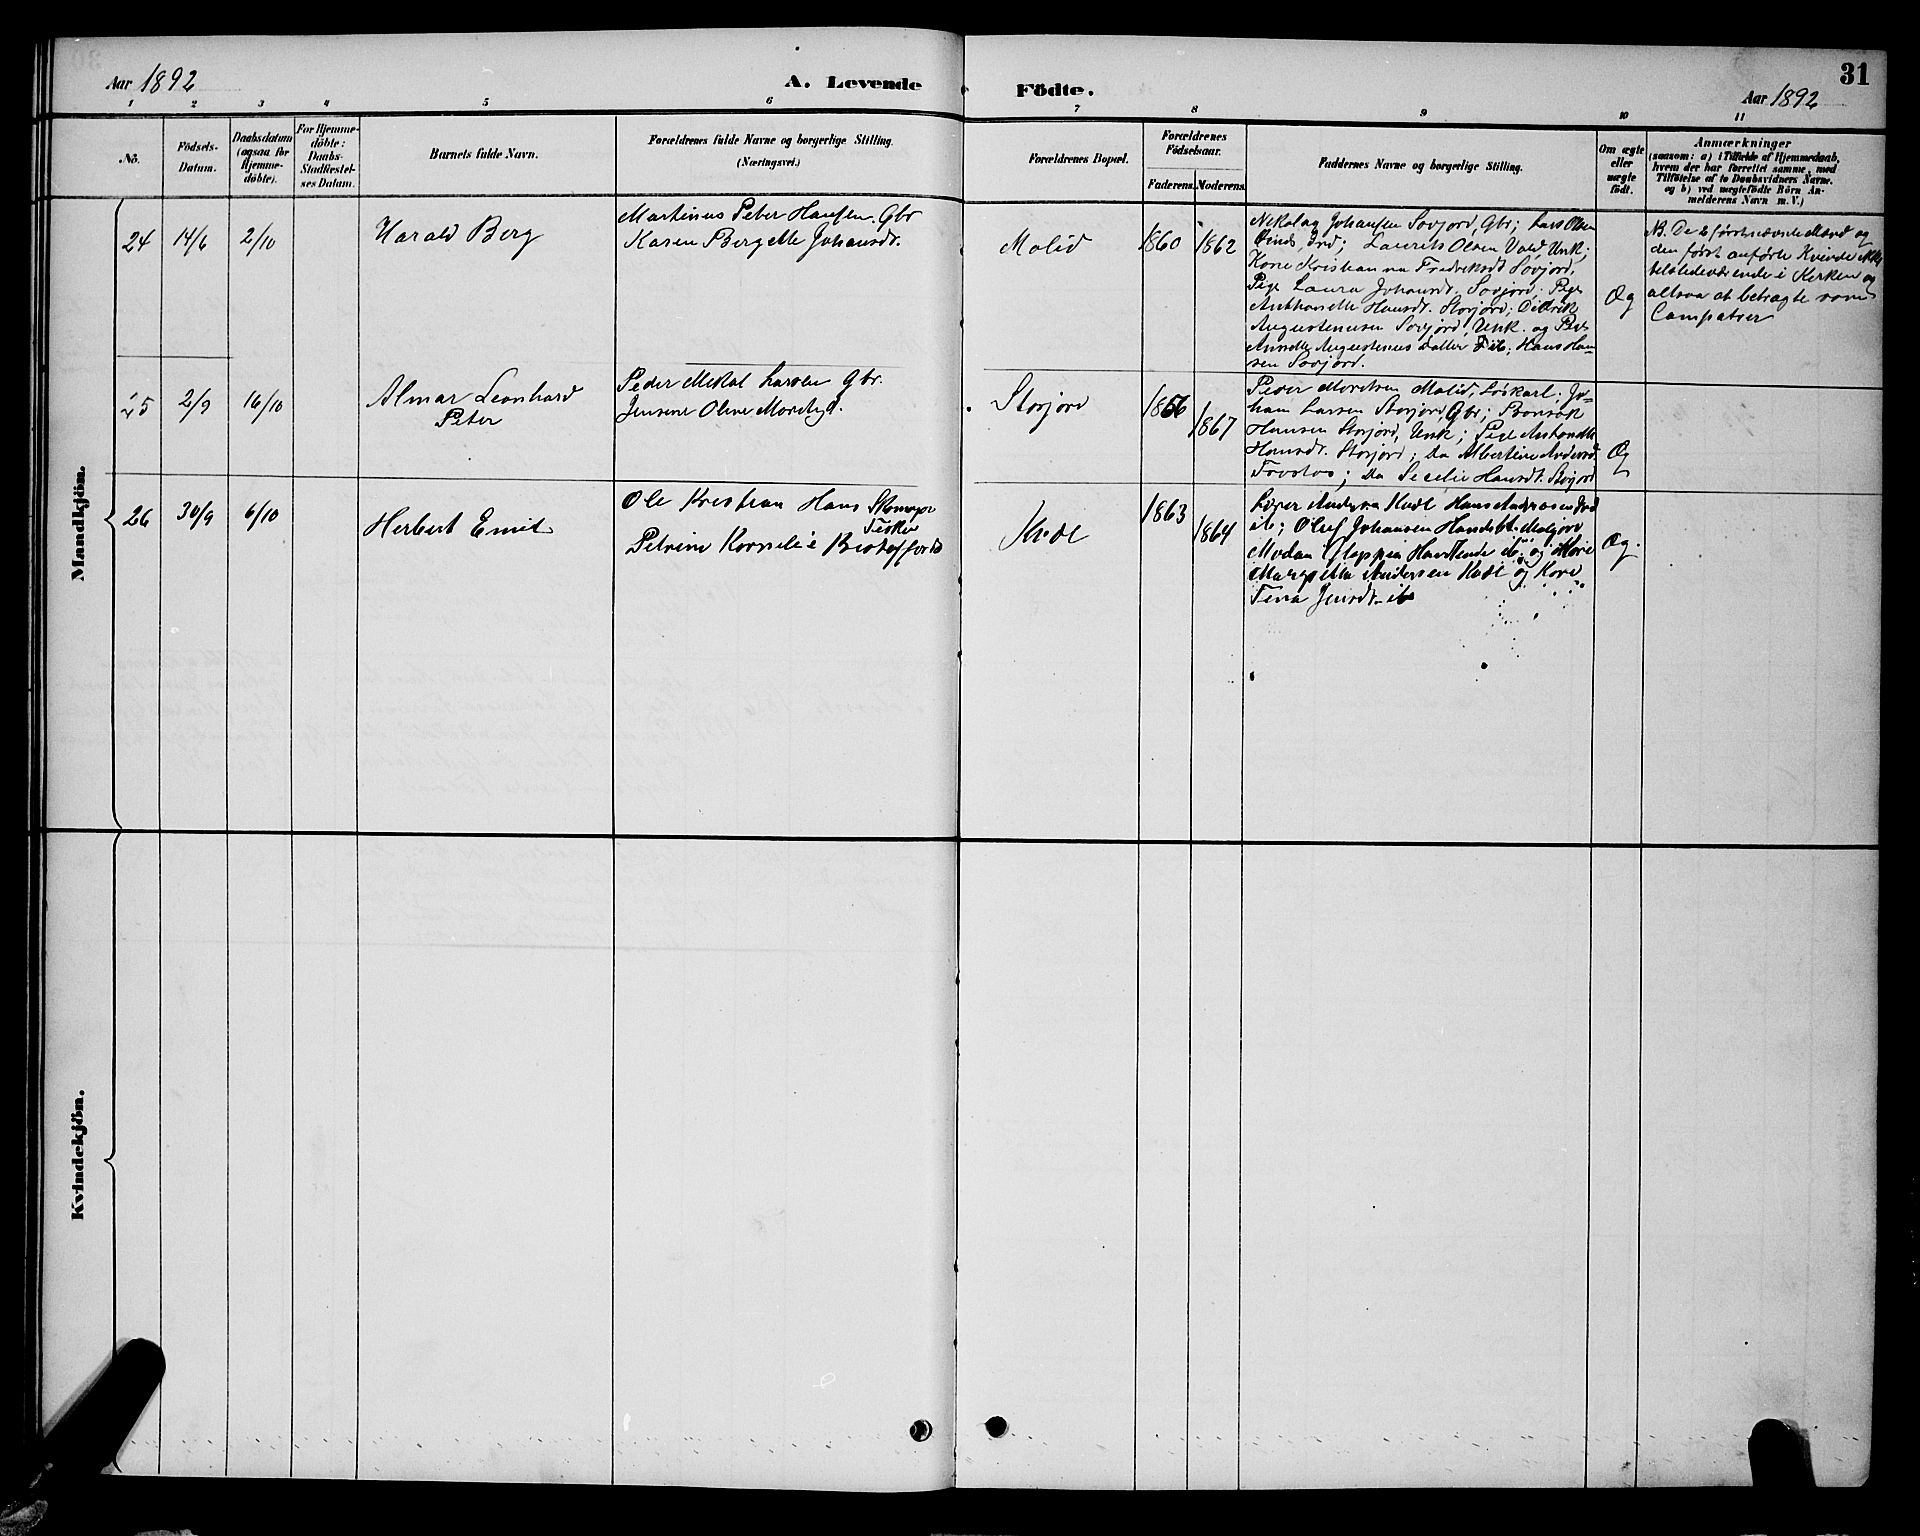 31
Aar 1892
A. Levende Födte.
Aar 1892
1 2 3 4 5 6 7 8 9 10 11
No.
Födsels-
Datum.
Daabsdatum
(ogsaa for
Hjemme-
döbte).
For Hjemme-
döbte:
Daabs-
Stadfæstel-
ses Datum.
Barnets fulde Navn.
Forældrenes fulde Navne og borgerlige Stilling.
(Næringsvei.)
Forældrenes Bopæl.
Forældrenes
Födselsaar.
Faderens. Moderens.
Faddernes Navne og borgerlige Stilling.
Om ægte
eller
uægte
födt.
Anmærkninger
(saasom: a) i Tilfælde af Hjemmedaab,
hvem der har forrettet samme, med
Tilföielse af to Daabsvidners Navne.
og b) ved uægtefödte Börn An-
melderens Navn m. V.)
Mandkjön.
24 14/6 2/10
Harald Berg
Martinus Peter Hansen. Gbr
Karen Bergette Johansdt.
Molid
1860 1862
Nikolay Johansen Sovjord, Gbr; Lars Olsen
Inds; Laurits Olsen Vold, Unk;
Kone Kristian na Fredriksdt Sovjord,
Pige Laura Johansdt. Sovjord; Pige
Anthonette Hansdt. Storjord; Didrik
Augustenusen Sovjord, Unk. og Pige
Annette Augustenus datter ib; Hans Han-
sen Sovjord.
Æg
NB. De 2 førstnævnte Mænd og
den først anførte Kvinde ikke
tilstedeværende i Kirken og
altsaa at betragte som
Compatrer
25 2/9 16/10
Almar Leonhard
Peter
Peder Mikal Larsen Gbr.
Jensine Oline Moritsd.
Storjord
1866
1867
Peder Moritsen Molid, Løskarl; Jo-
han Larsen Storjord, Gbr; Bonsak
Hansen Storjord, Unk; Pige Anthonette
Hansdt. Storjord; Do Albertine Andersd
; Do Secelie Hansdt. Storjord
Æg
26 30/9 6/10
Herbert Emil
Ole Kristian Hans Skomager
Fisker
Petrine Kornelie
1863
1864
Hans Andreasen
ib; Oluf Johansen
ib; og Kone
Andersen og Kone
Tina Jensdt. ib
Æg.
Kvindekjön.